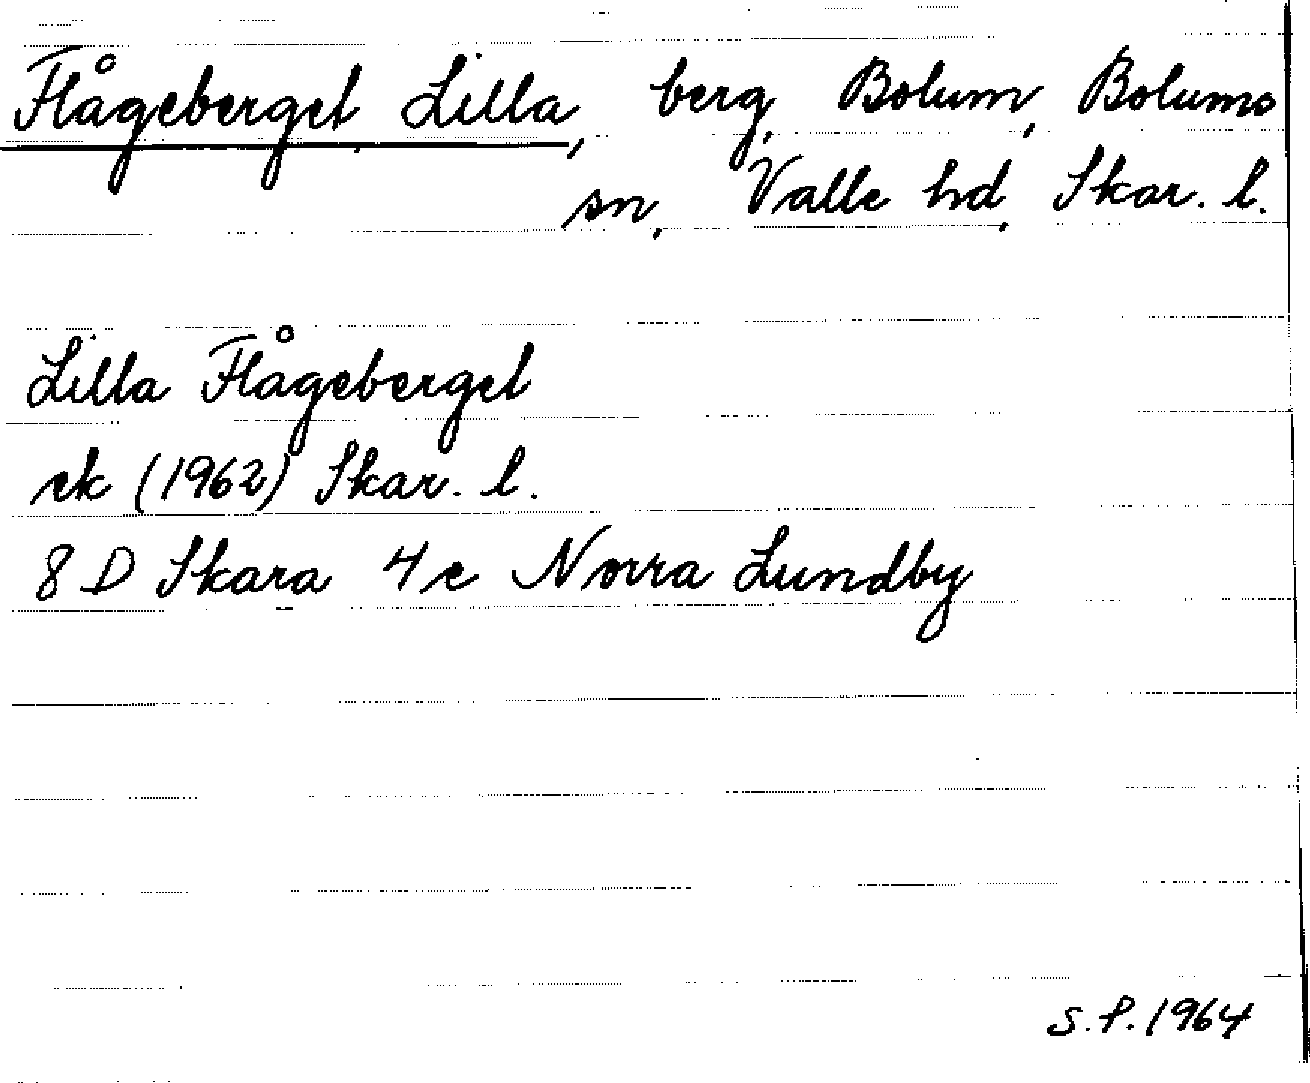 Flågeberget, Lilla, berg, Bolum, Bolums
sn, Valle hd, Skar. l.
Lilla Flågeberget
ek (1962) Skar. l.
8 D Skara 4 e Norra Lundby
S.P. 1964